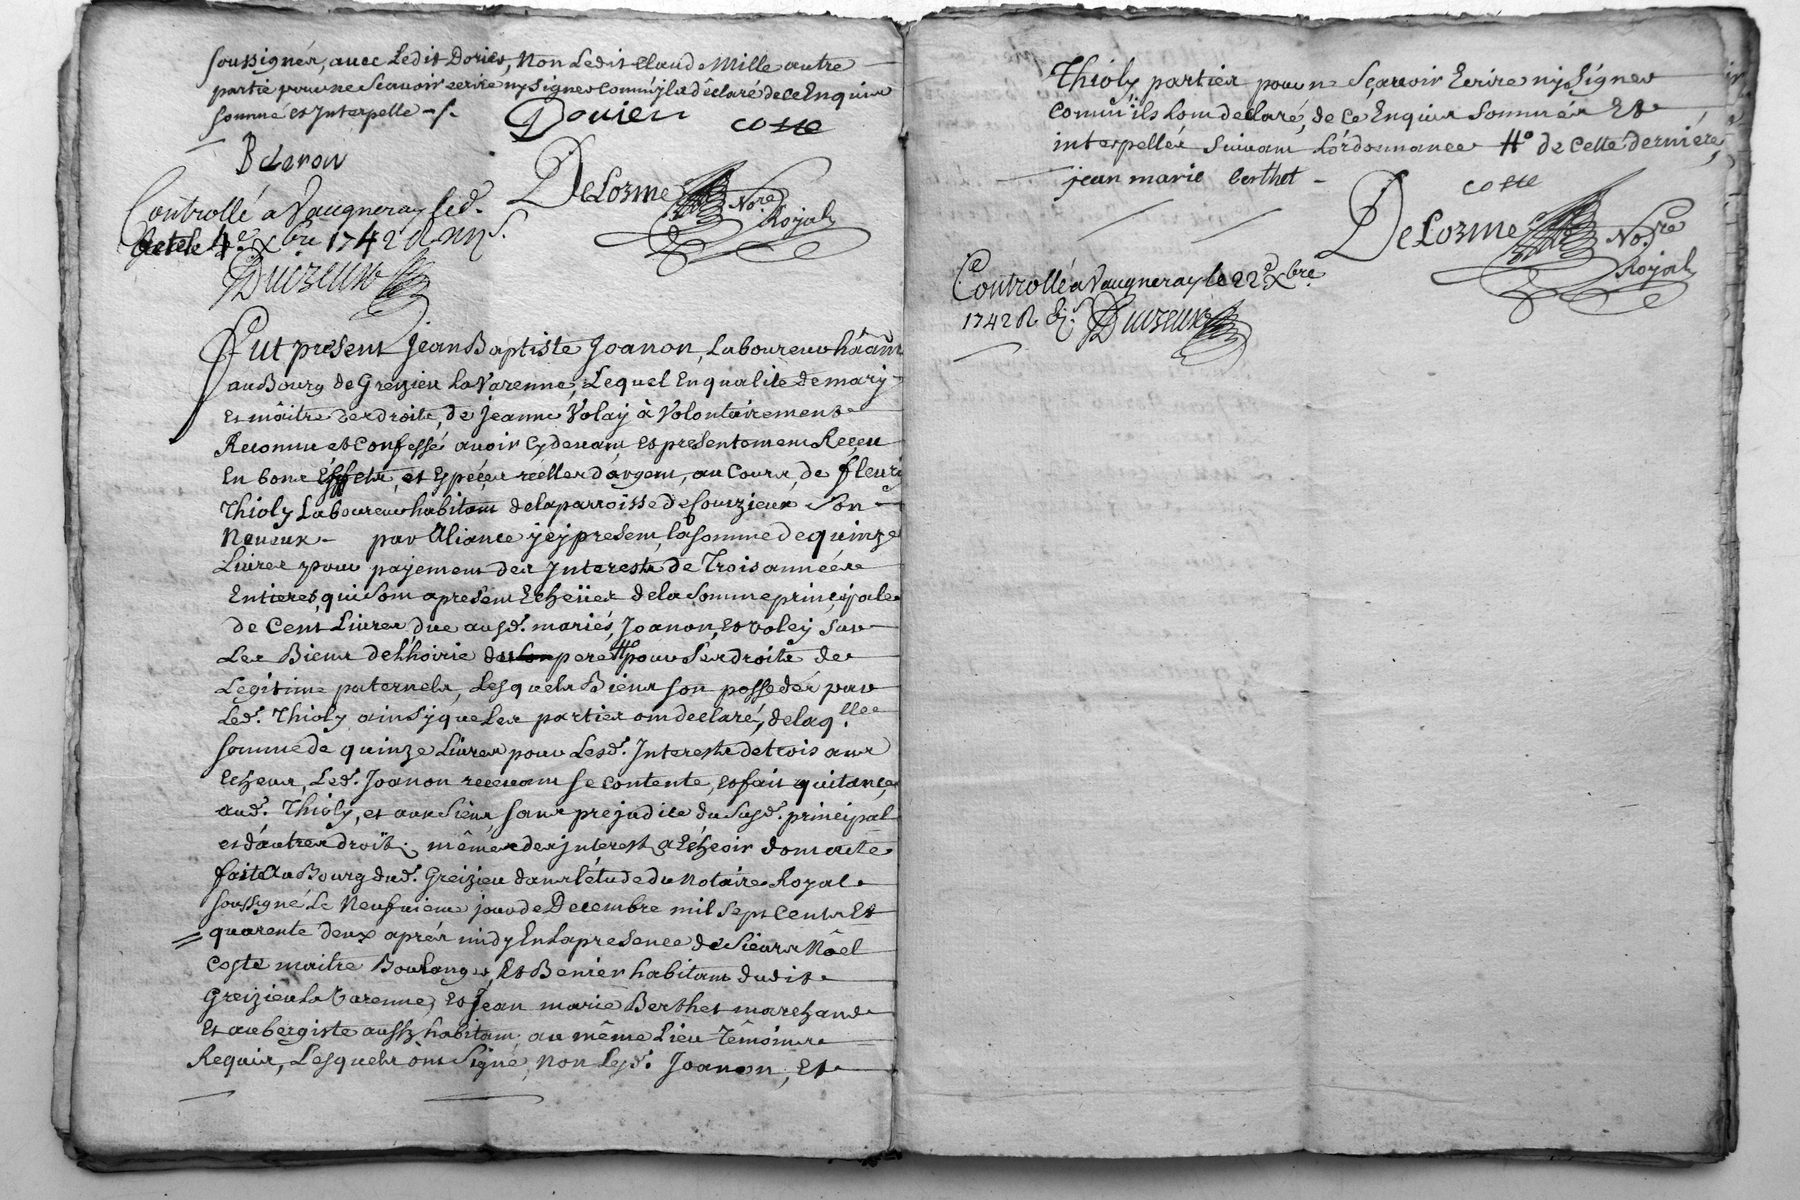 soussignés, avec Ledit Dorier, Non Ledit Claude Mille autre
partie pour ne Scavoir ecrire ny Signer Comm'jl a dêclaré de ce Enquis
sommé et Jnterpellé -/-
Dorier coste
B Leron
DeLorme No.re Royal
Controllé a Vaugneray led.
1742
Fut present Jean Baptiste Joanon, Laboureur ha͠ant
au Bourg de Greizieu La Varenne, Lequel En qualité de mary
et mâitre des droits, de Jeanne Volay à Volontairement
Reconnu et Confessé avoir Cy devant, et presentement Reçeu
En bons Éffets, et Espéces réelles d'argent, au Cours, de fleury
Thioly Laboureur habitant de la parroisse de Sourzieux Son
Neveux - par Aliance jcy present, la somme de quinze
Livres pour payement des Jnterests de Trois années
Entieres, qui sont apresent Echeües de la Somme principale
de Cent Livres, due ausd. mariés, Joanon, et Voley Sur
Les Biens de Lhoirie du pere # pour Ses droits de
Legitime paternels, Lesquels Biens son possedés par
Led. Thioly ainsy que Les parties ont declaré, de laq.lle
somme de quinze Livres pour Lesd. Jnterests de trois ans
Echeus, Led. Joanon recevant se contente, et fait quitance
aud. Thioly, et aux Siens, sans prejudice du Susd. principal
et d'autres droits. mêmes des jnterest a Echeoir dont acte
fait au Bourg dud. Greizieu dans l'étude du Notaire Royal
soussigné Le Neufvieme jour de Decembre mil Sept Cents Et
quarente deux aprés midy En La presence de Sieurs Nôel
Coste maitre Boulanger, Et Benier habitant dudit
Greizieu La Varenne, et Jean marie Berthet marchand
Et aubergiste aussy habitant au même Lieu Têmoins
Requis, Lesquels ont Signé, non Lesd. Joanon, Et
Thioly parties pour ne Sçavoir Ecrire ny Signer
Comm'ils L'ont declaré, de ce Enquis Sommés Et
interpellés Suivant L'ordonnance # de Cette derniére
jean marie berthet - coste
DeLorme No.re Royal
Controllé a Vaugneray le 22e Xbre
1742